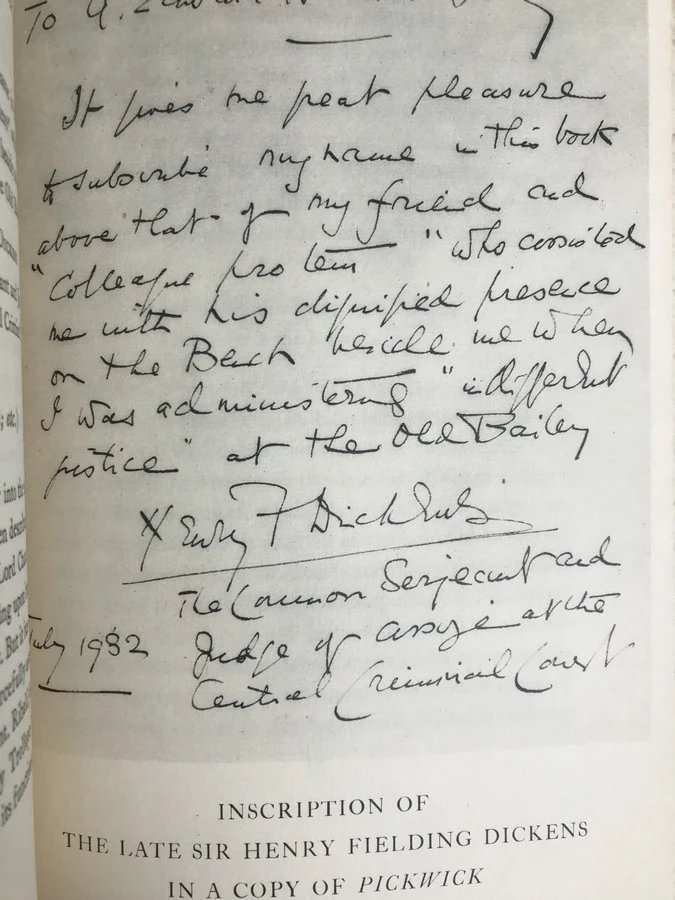 To A.
It gives me great pleasure
to subscribe my name in this book
above that of my friend and
"Colleague pro tem" who assisted
me with his dignified presence
on the Bench beside me when
I was administering "indifferent
justice" at the Old Bailey
Henry F Dickens
The Common Serjeant and
July 1932 Judge of assize at the
Central Criminal Court
INSCRIPTION OF
THE LATE SIR HENRY FIELDING DICKENS
IN A COPY OF PICKWICK